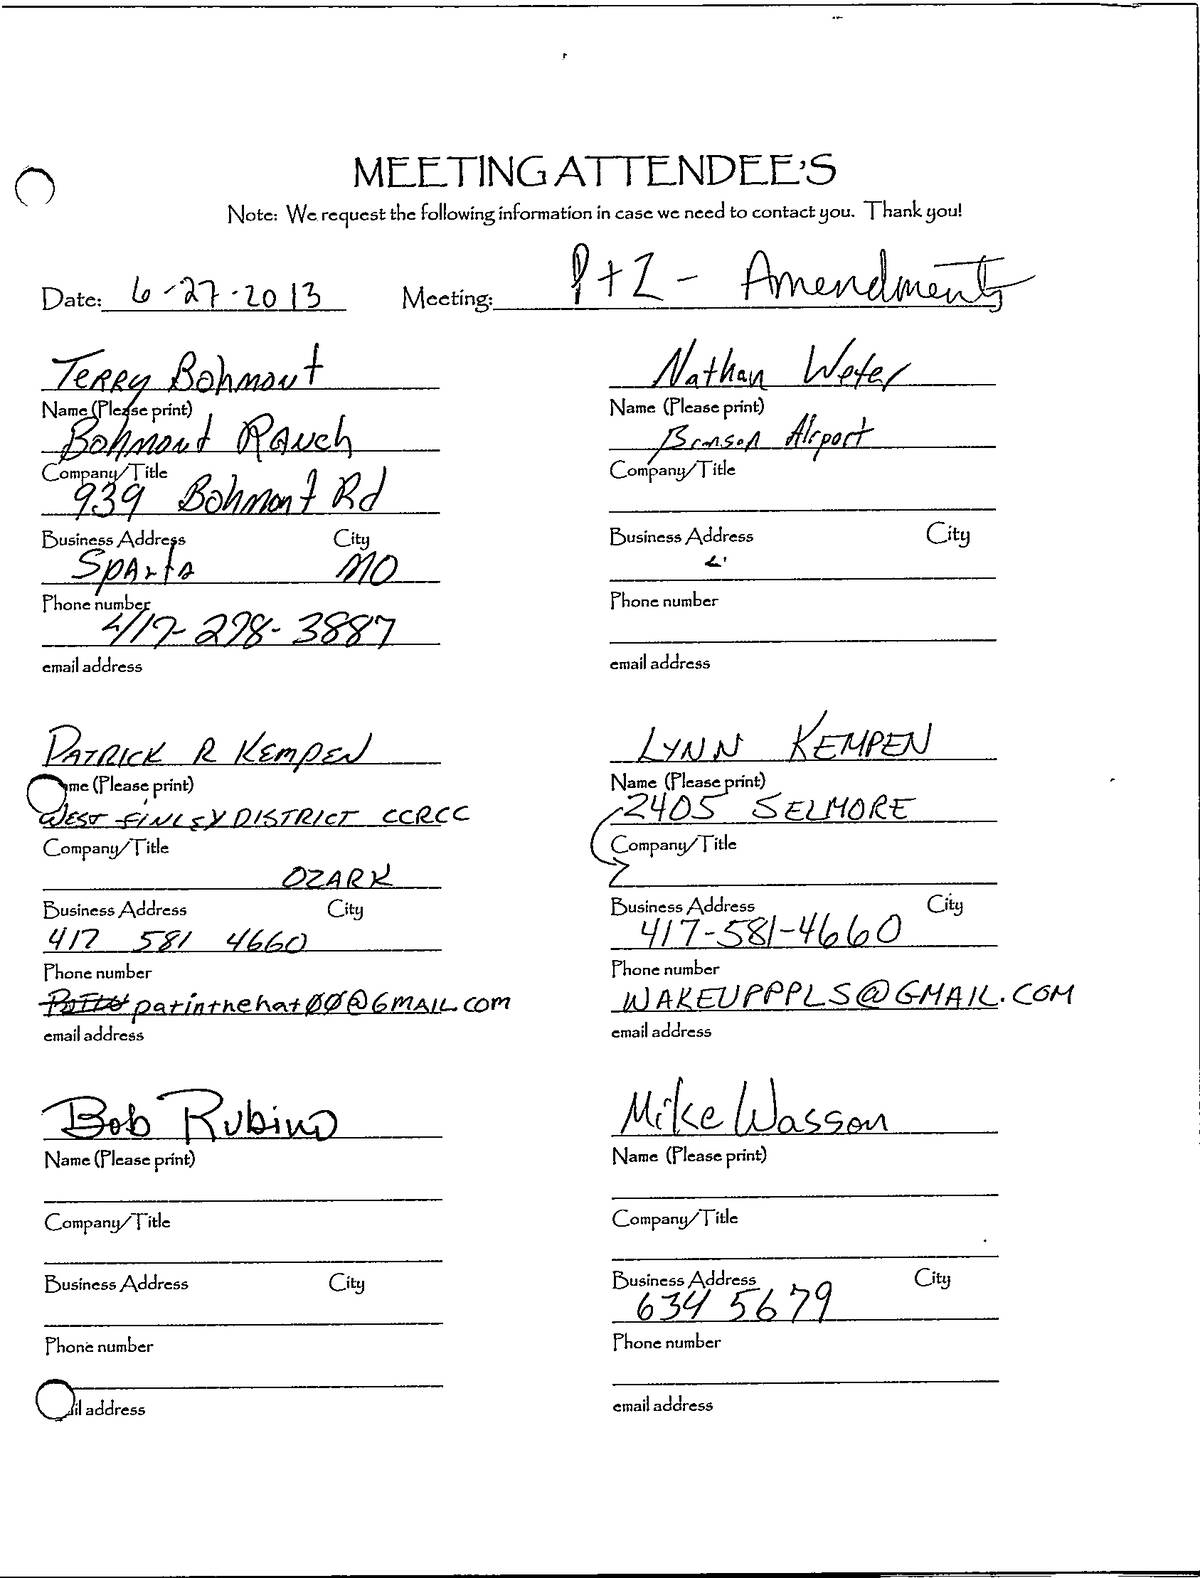 MEETING ATTENDEE'S
Note: We request the following information in case we need to contact you. Thank you!
Date: 6-27-2013 Meeting: P+Z - Amendments
Terry Bohmont
Name (Please print)
Bohmont Ranch
Company/Title
939 Bohmont Rd
Business Address City
Sparta MO
Phone number
417-278-3887
email address
Nathan Weter
Name (Please print)
Branson Airport
Company/Title
Business Address City
Phone number
email address
PATRICK R KEMPEN
me (Please print)
WEST FINLEY DISTRICT CCRCC
Company/Title
OZARK
Business Address City
417 581 4660
Phone number
patinthehat00@GMAIL.COM
email address
LYNN KEMPEN
Name (Please print)
2405 SELMORE
Company/Title
Business Address City
417-581-4660
Phone number
WAKEUPPPLS@GMAIL.COM
email address
Bob Rubino
Name (Please print)
Company/Title
Business Address City
Phone number
il address
Mike Wasson
Name (Please print)
Company/Title
Business Address City
634 5679
Phone number
email address